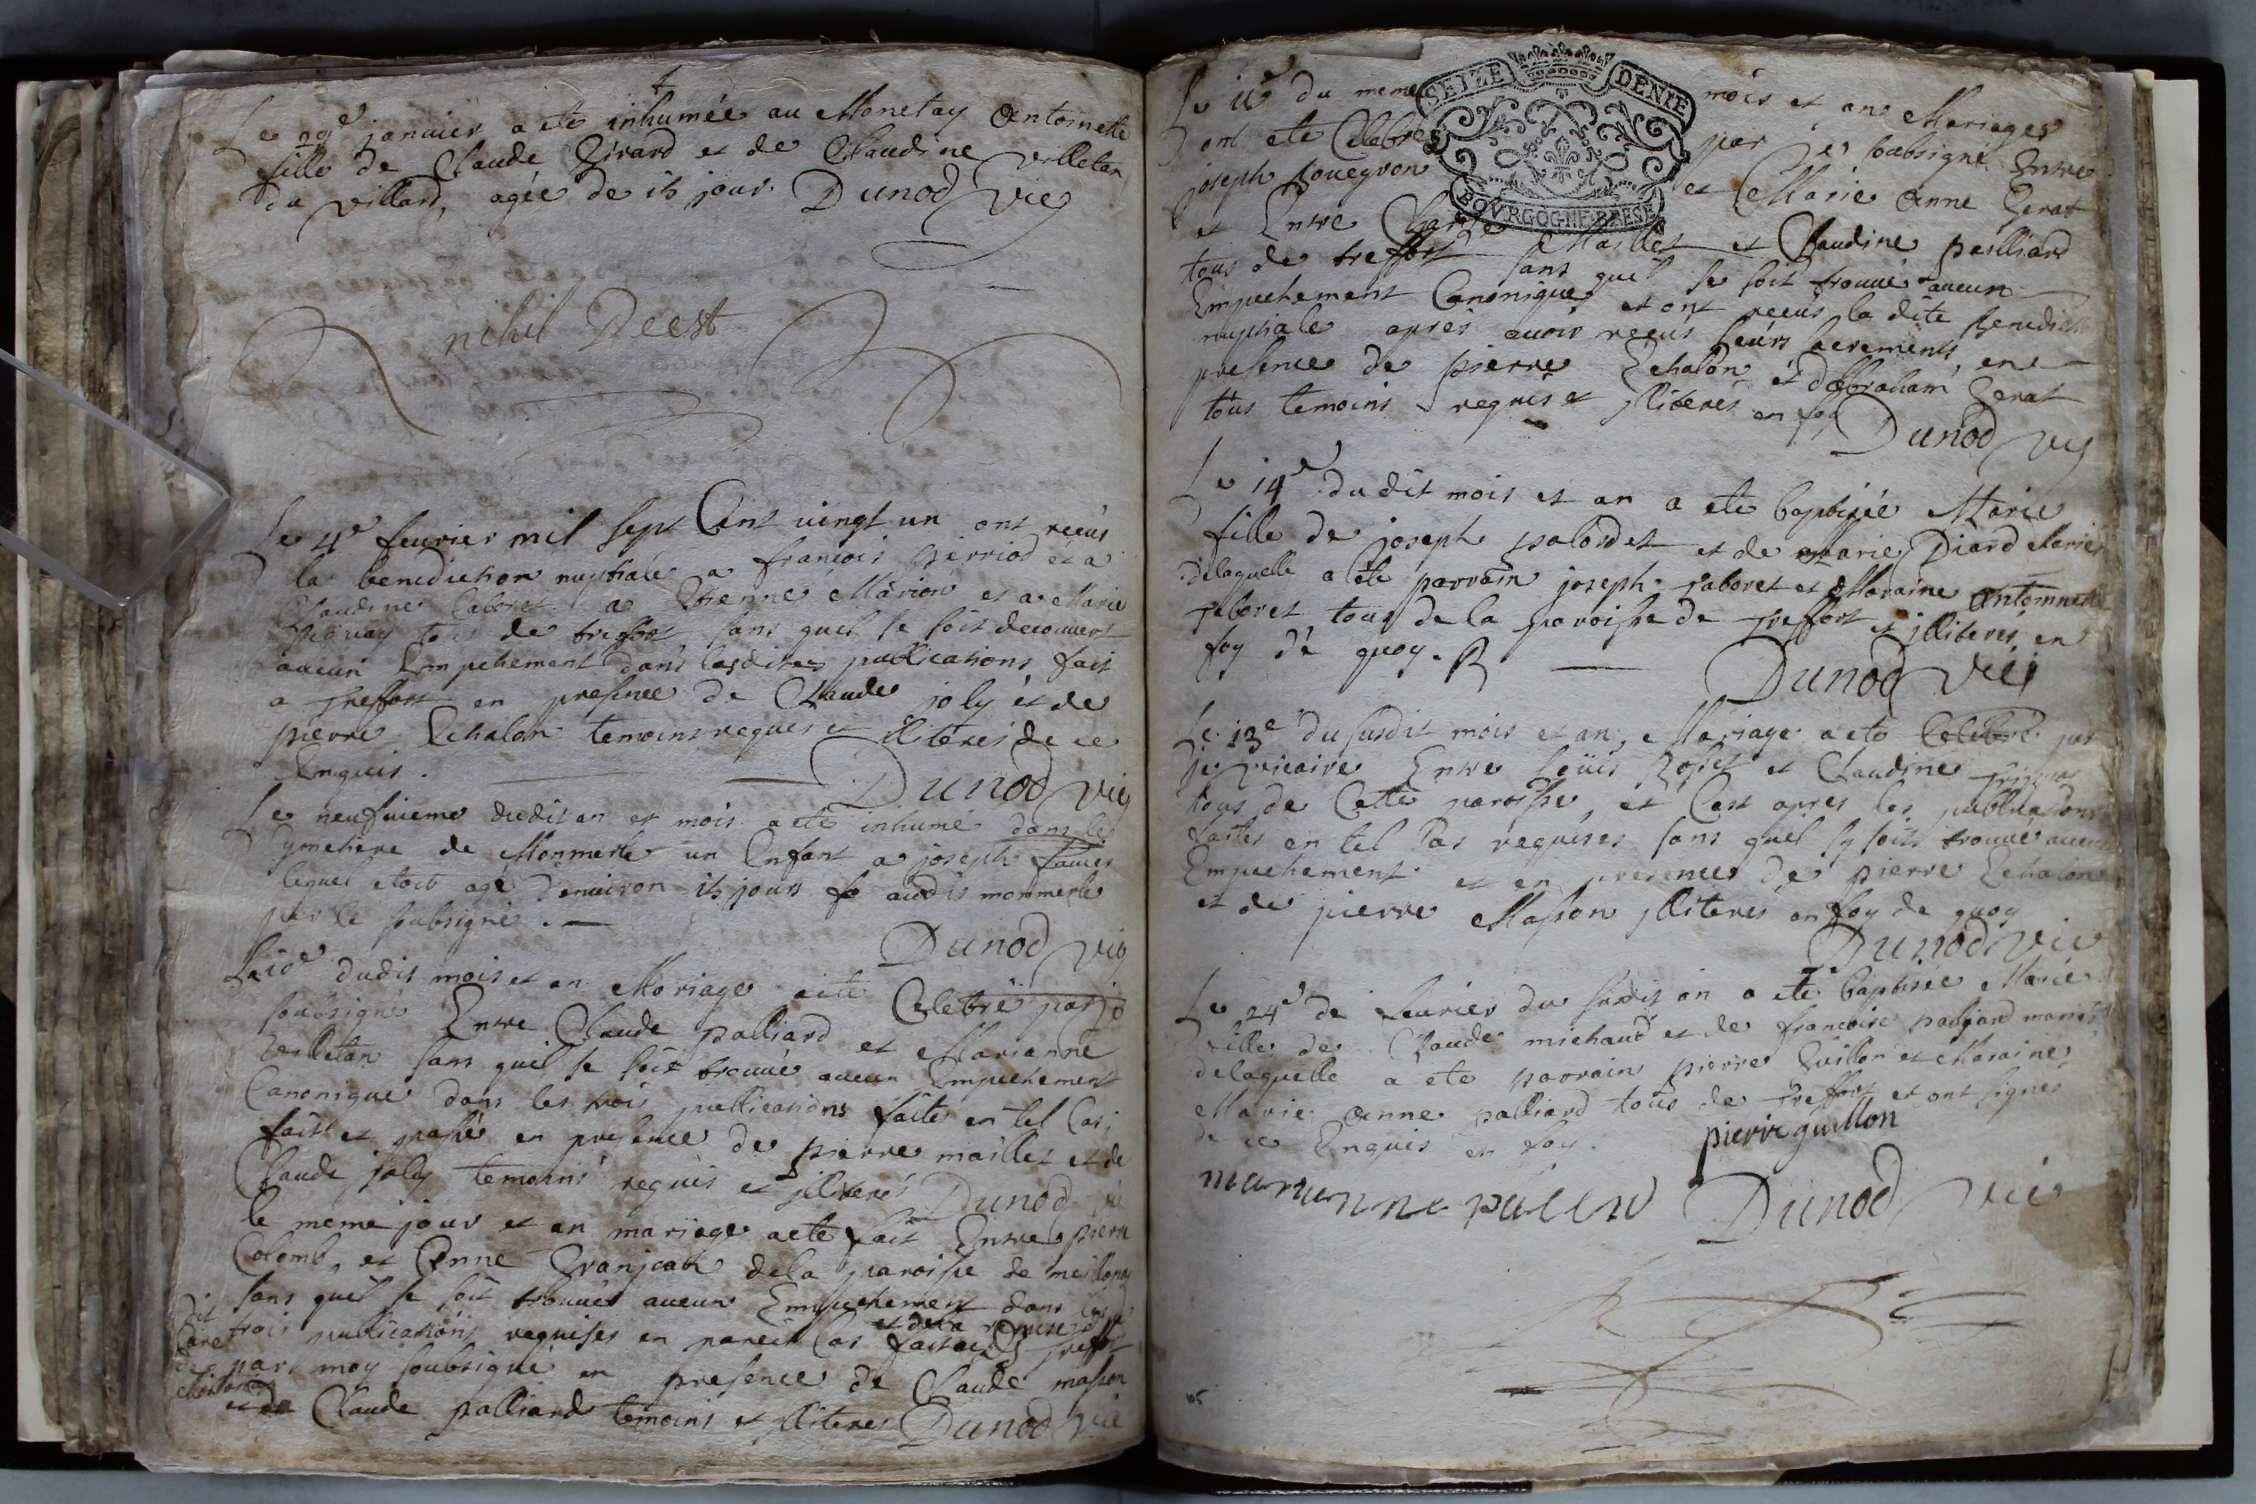 Le 29e janvier a ete inhumée au Monetay Antoinette
fille de Claude Girard et de Claudine Villetan
du villard, agée de 15 jour. Dunod Vic
nihil Deest
Le 4e feurier mil sept Cent vingt un ont reçus
la benediction nuptiale a francois Perriod et a
Claudine Caboret a Etienne Marion et a Marie
tous de treffort sans quil se soit decouuert
aucun Empechement dans lesdites publications fait
a treffort en presence de Claude joly et de
pierre Echalon temoins requis et illiterés de ce
Enquis.
Dunod Vic
Le neufuieme dudit an et mois a ete inhumé dans le
Cymetiere de Monmerle un Enfant a joseph
lequel etoit agé d'enuiron 15 jours audit monmerle
par le soubsigné.
Dunod Vic
Le 10e dudit mois et an Mariage a ete Celebré par je
soubsigné Entre Claude palliard et Marianne
Velletan sans quil se soit trouué aucun Empechement
Canonique dans les trois publications faite en tel Cas,
fait et passé en presence de pierre maillet et de
Claude joly temoins requis et illiterés Dunod Vic
le meme jour et an mariage a ete fait Entre pierre
Colomb, et Anne Granjean de la paroisse de meillona
sans quil se soit trouués aucun Empechement dans les
trois publications requises en pareil Cas fait a treffort
et de la remise
par moy soubsigné en presence de Claude masson
et de Claude palliard temoins et illiteres Dunod Vic
Le 11e du meme mois et an Mariages
ont ete Celebres par je soubsigné Entre
joseph et Marie Anne Gerat
et Entre Maillet et Claudine palliard
tous de treffort sans quil se soit trouué aucun
Empechement Canonique et ont reçus la dite benediction
nuptiale apres auoir reçus leurs sacrements en
presence de pierre Echalon et d'abraham Gerat
tous temoins requis et illiterés en foy Dunod Vic
Le 14e dudit mois et an a ete baptisée Marie
fille de joseph palordet et de marie Piard Mariés
de laquelle a ete parrain joseph taboret et Maraine Antoinette
taboret tous de la paroisse de treffort et illiterés en
foy de quoy.
Dunod Vic
Le 13e du susdit mois et an, Mariage a ete Celebré par
je vicaire Entre loüis Rosset et Claudine
tous de Cette paroisse, et C'est apres les publications
faites en tel Cas requises sans quil sy soit trouué aucun
Empechement et en presence de pierre Echalon
et de pierre Masson illiterés en foy de quoy
Dunod Vic
Le 24e de feurier du susdit an a ete baptisée Marie
fille de Claude michaud et de francoise paliard mariés
de laquelle a ete parrain pierre Guillon et Maraine
Marie Anne palliard tous de treffort et ont signés
de ce Enquis en foy. pierre guillon
Dunod Vic
SEIZE DENIE
BOVRGOGNE BRESSE